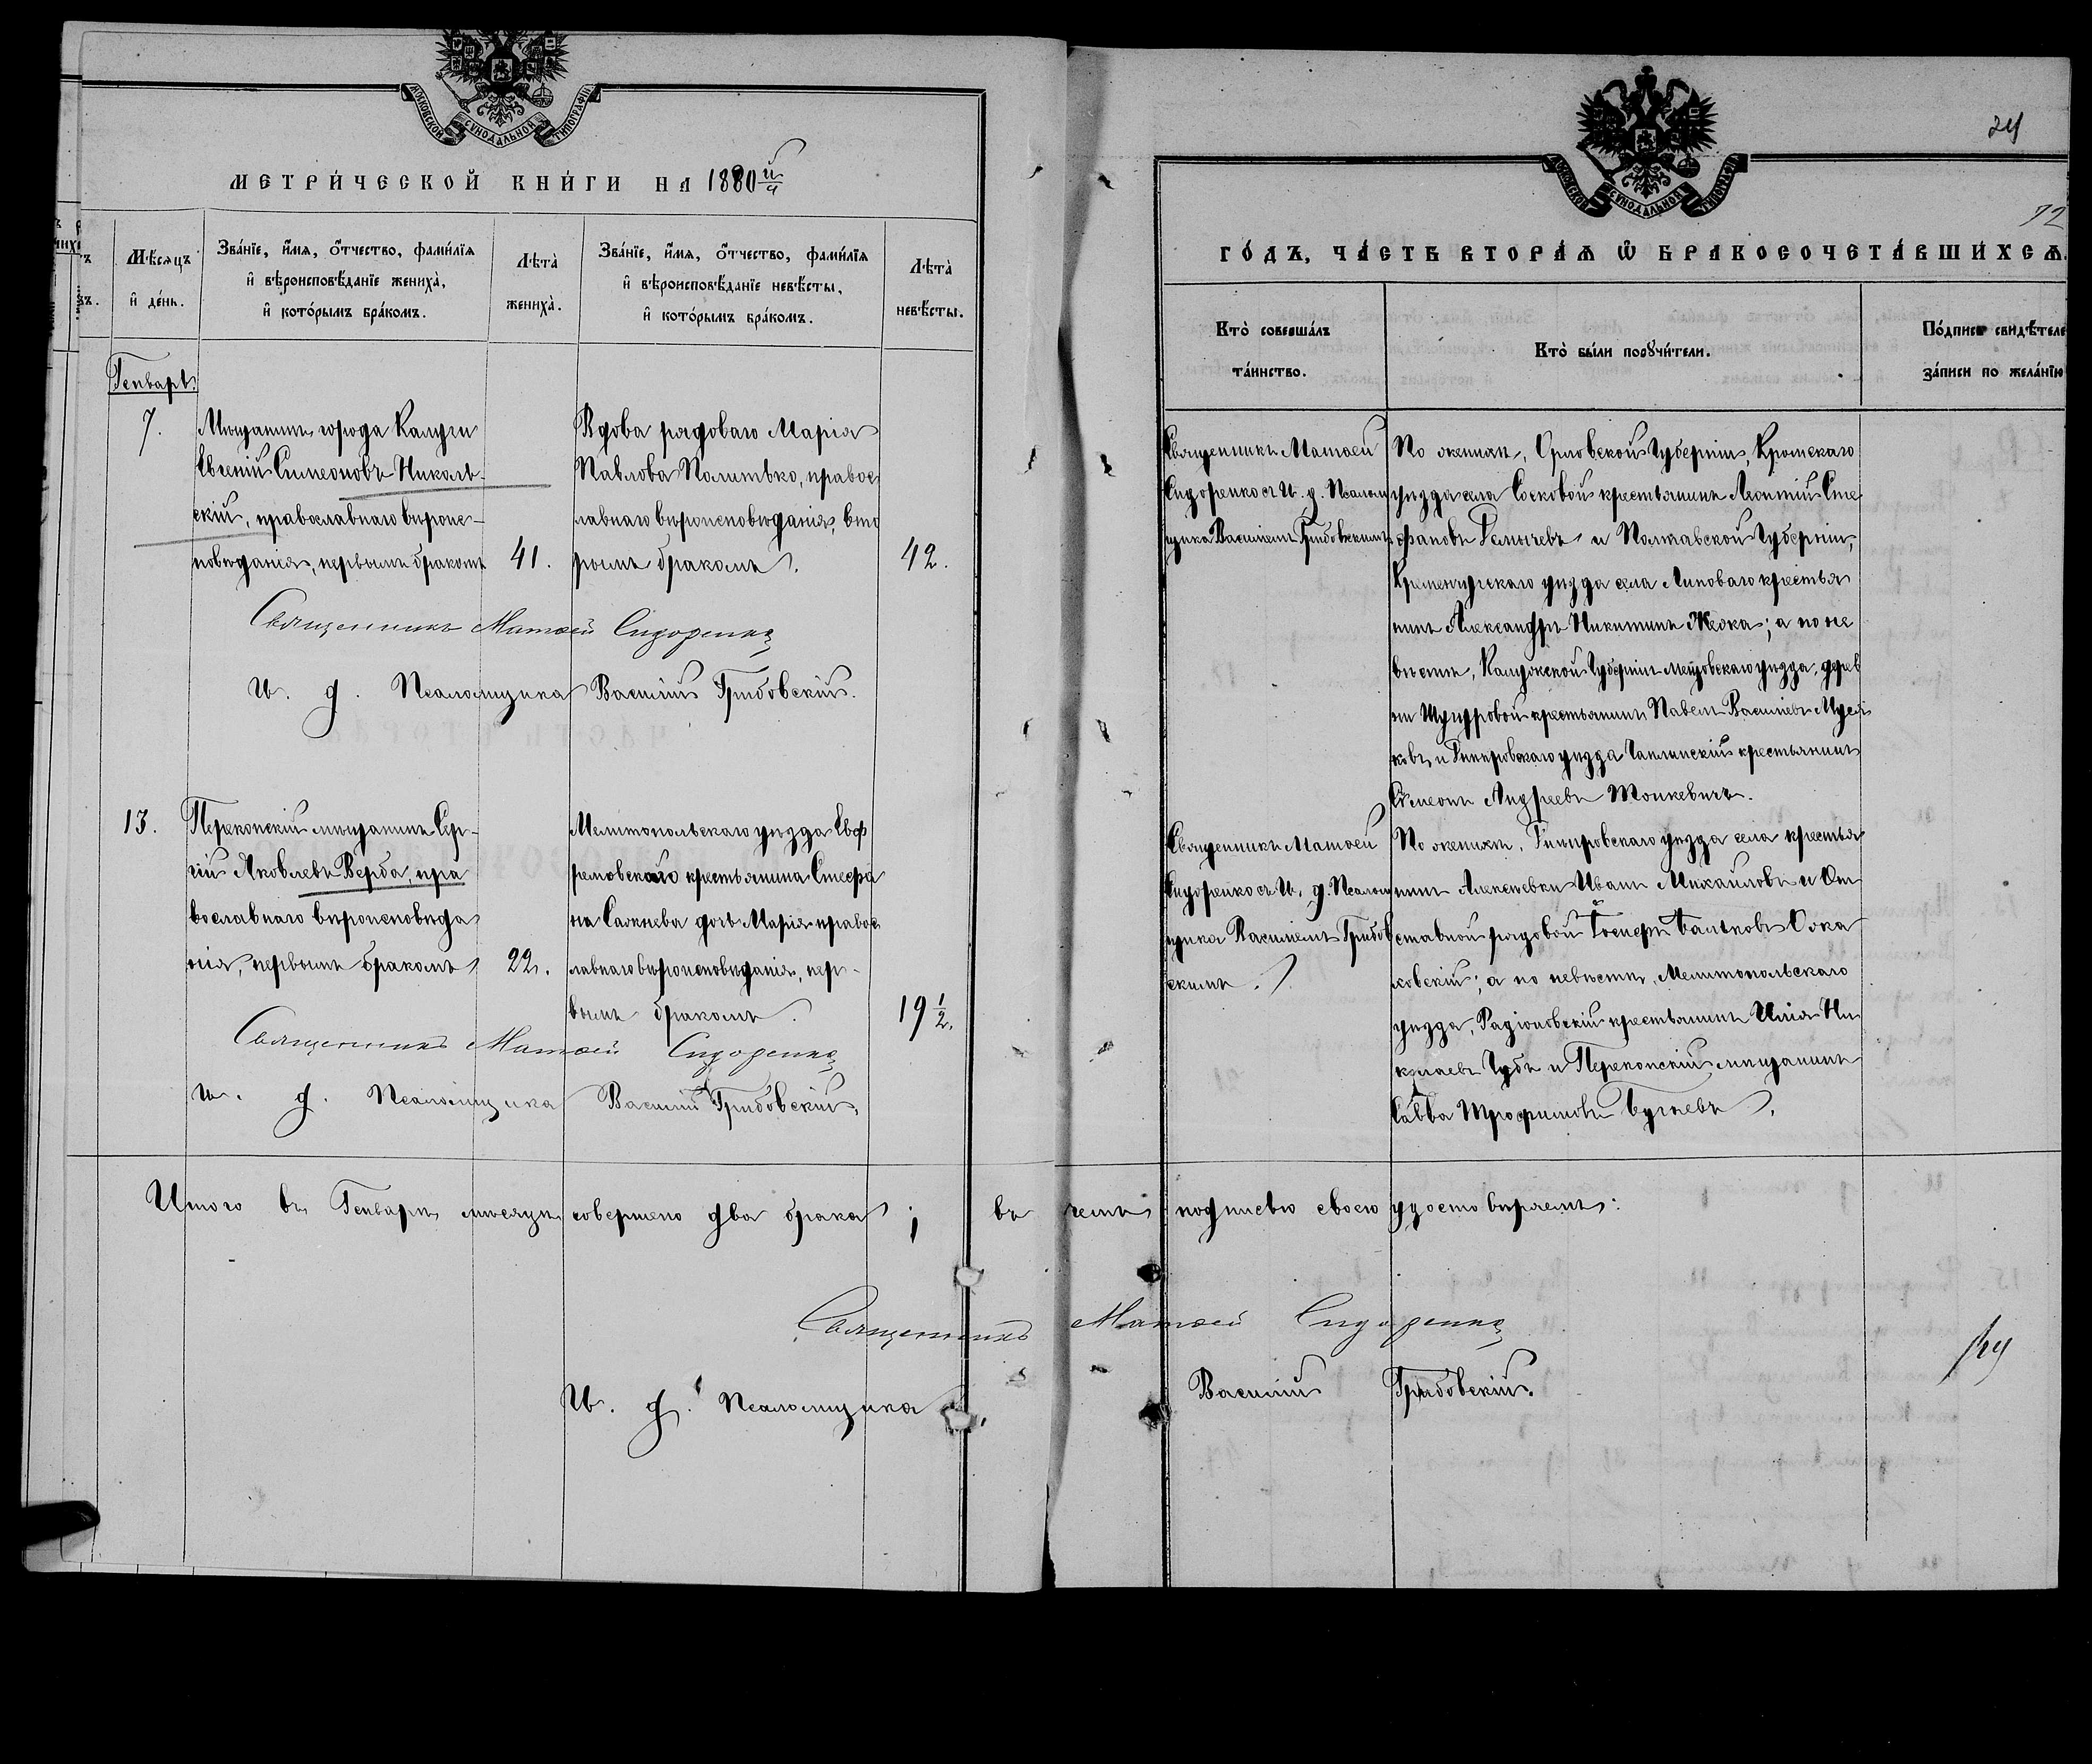 МОСКОВСКОЙ СѴНОДАЛЬНОЙ ТИПОГРАФІИ
МЕТРИ́ЧЕСКОЙ КНИ́ГИ НА 1880 й/г
Мѣсяцъ и де́нь.
Зва́нїе, и҆́мя, ѻ҆́тчество, фами́лїя
и҆ вѣроисповѣ́данїе жениха̀,
и҆ кото́рымъ бра́комъ.
Лѣта̀
жениха̀.
Зва́нїе, и҆́мя, ѻ҆́тчество, фами́лїя
и҆ вѣроисповѣ́данїе невѣ́сты,
и҆ кото́рымъ бра́комъ.
Лѣта̀
невѣ́сты.
Генварь.
7.
Мѣщанинъ города Калуги
Евгеній Симеоновъ Николь-
скій, православнаго вѣроис-
повѣданія, первымъ бракомъ
41.
Вдова рядоваго Марія
Павлова Политько, правос
лавнаго вѣроисповѣданія, вто
рымъ бракомъ.
42.
Священникъ Матѳей Сидоренко
И. д. Псаломщика Василій Грибовскій.
13.
Перекопскій мѣщанинъ Сер-
гій Яковлевъ Верба, пра
вославнаго вѣроисповѣда
нія, первымъ бракомъ
22.
Мелитопольскаго уѣзда Евф
ремовскаго крестьянина Стефа
на дочь Марія правос
лавнаго вѣроисповѣданія, пер-
вымъ бракомъ.
19 1/2.
Священникъ Матѳей Сидоренко
И. д. Псаломщика Василій Грибовскій.
Итого въ Генварѣ мѣсяцѣ совершено два брака;
И. д. Псаломщика
24
72
МОСКОВСКОЙ СѴНОДАЛЬНОЙ ТИПОГРАФІИ
ГО́ДЪ, ЧА́СТЬ ВТОРА́Ѧ Ѡ҆ БРАКОСОЧЕТА́ВШИХСѦ.
Кто̀ соверша́лъ
та́инство.
Кто̀ бы́ли порꙋчи́тели.
По́дписи свидѣ́теле
за́писи по жела́нїю
Священникъ Матѳей
Сидоренко съ И. д. Псалом
щика Василіемъ Грибовскимъ
По женихѣ, Орловской Губерніи, Кромскаго
уѣзда села Сосковой крестьянинъ Леонтій Сте
фановъ и Полтавской Губерніи,
Кременчугскаго уѣзда села Липоваго крестья
нинъ Александръ Никитинъ Жеока; а по не
вѣстѣ, Калужской Губерніи уѣзда, дерев
ни крестьянинъ Павелъ Васильевъ
ковъ и Днѣпровскаго уѣзда Чаплинскій крестьянинъ
Симеонъ Андреевъ Тонкевичъ.
Священникъ Матѳей
Сидоренко съ И. д. Псалом
щика Василіемъ Грибов
скимъ.
По женихѣ, Днѣпровскаго уѣзда села крестья
нинъ Алексѣевки Иванъ Михайловъ и От
ставной рядовой Іосифъ
ковскій; а по невѣстѣ, Мелитопольскаго
уѣзда, Радіоновскій крестьянинъ Илія Ни
колаевъ Чубъ и Перекопскій мѣщанинъ
Савва Трофимовъ
въ чемъ подписью своею удостовѣряемъ:
Священникъ Матѳей Сидоренко
Василій Грибовскій.